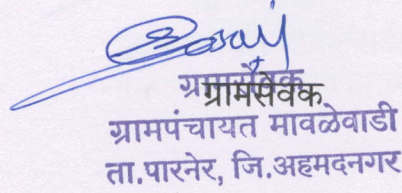 ग्रामसेवक
ग्रामपंचायत मावळेवाडी
ता.पारनेर, जि.अहमदनगर